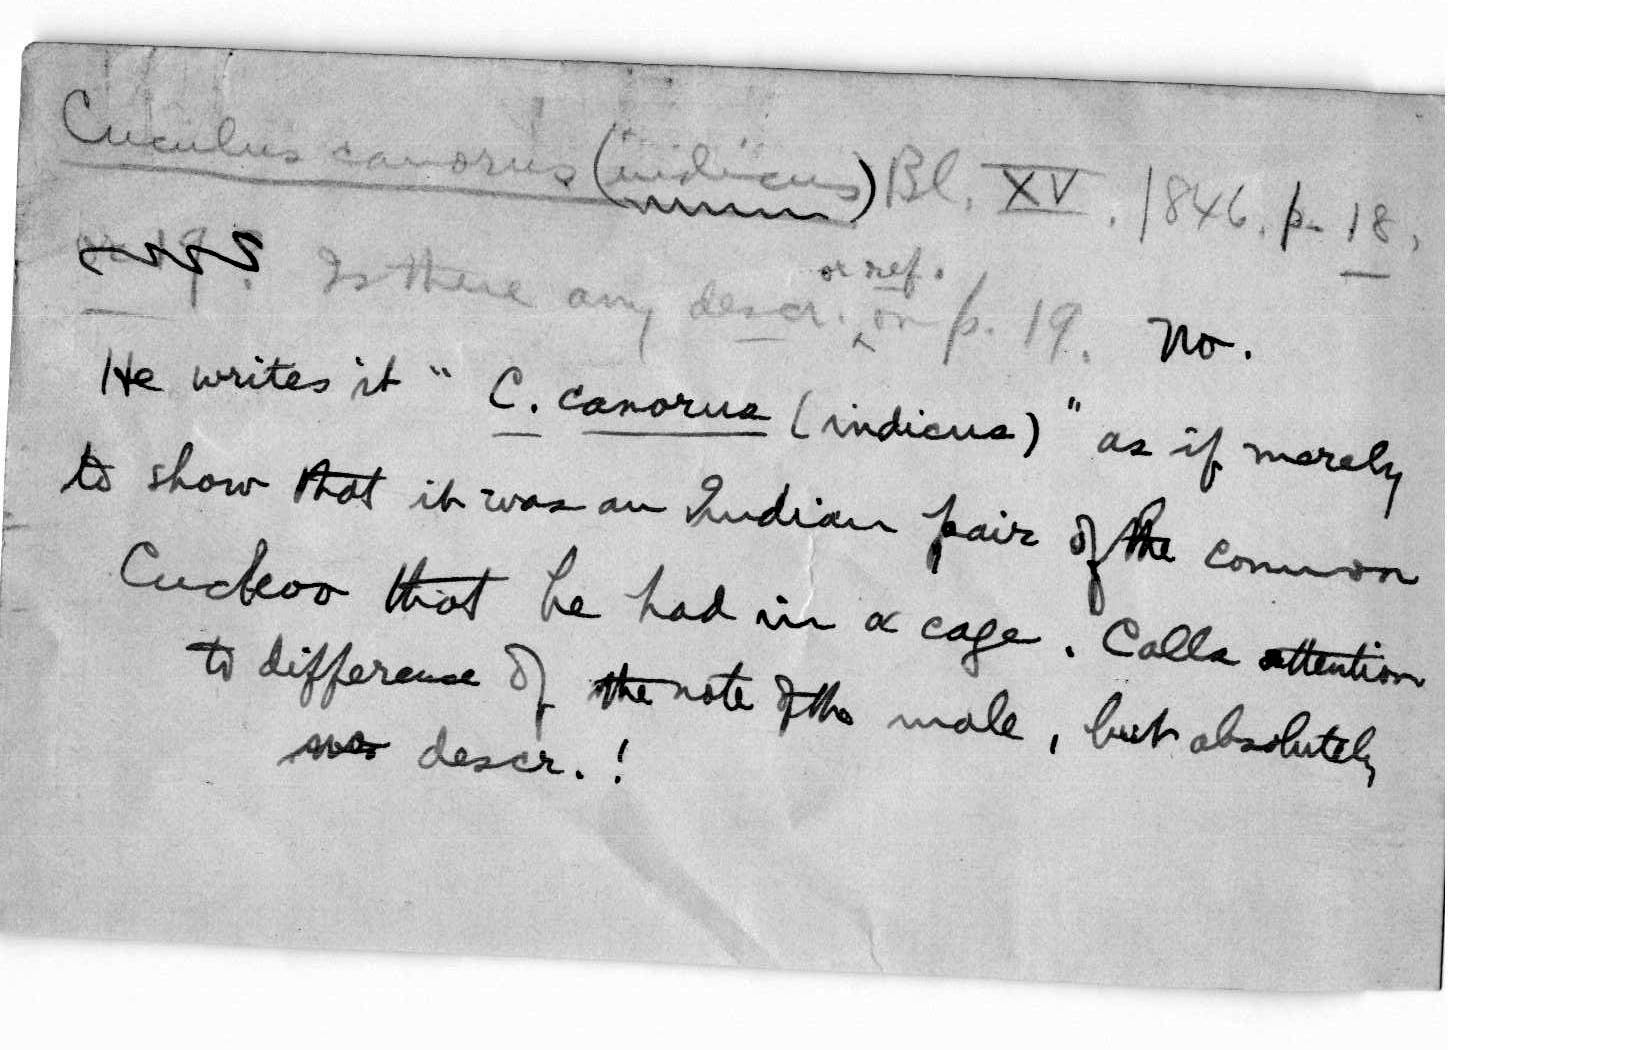 Cuculus canorus ("indicus") Bl. XV. 1846. p. 18,
or 19? Is there any descr. or ref. on p. 19. No.
He writes it " C. canorus (indicus)" as if merely
to show that it was an Indian pair of the common
Cuckoo that he had in a cage. Calls attention
to difference of the note of the male, but absolutely
no descr.!